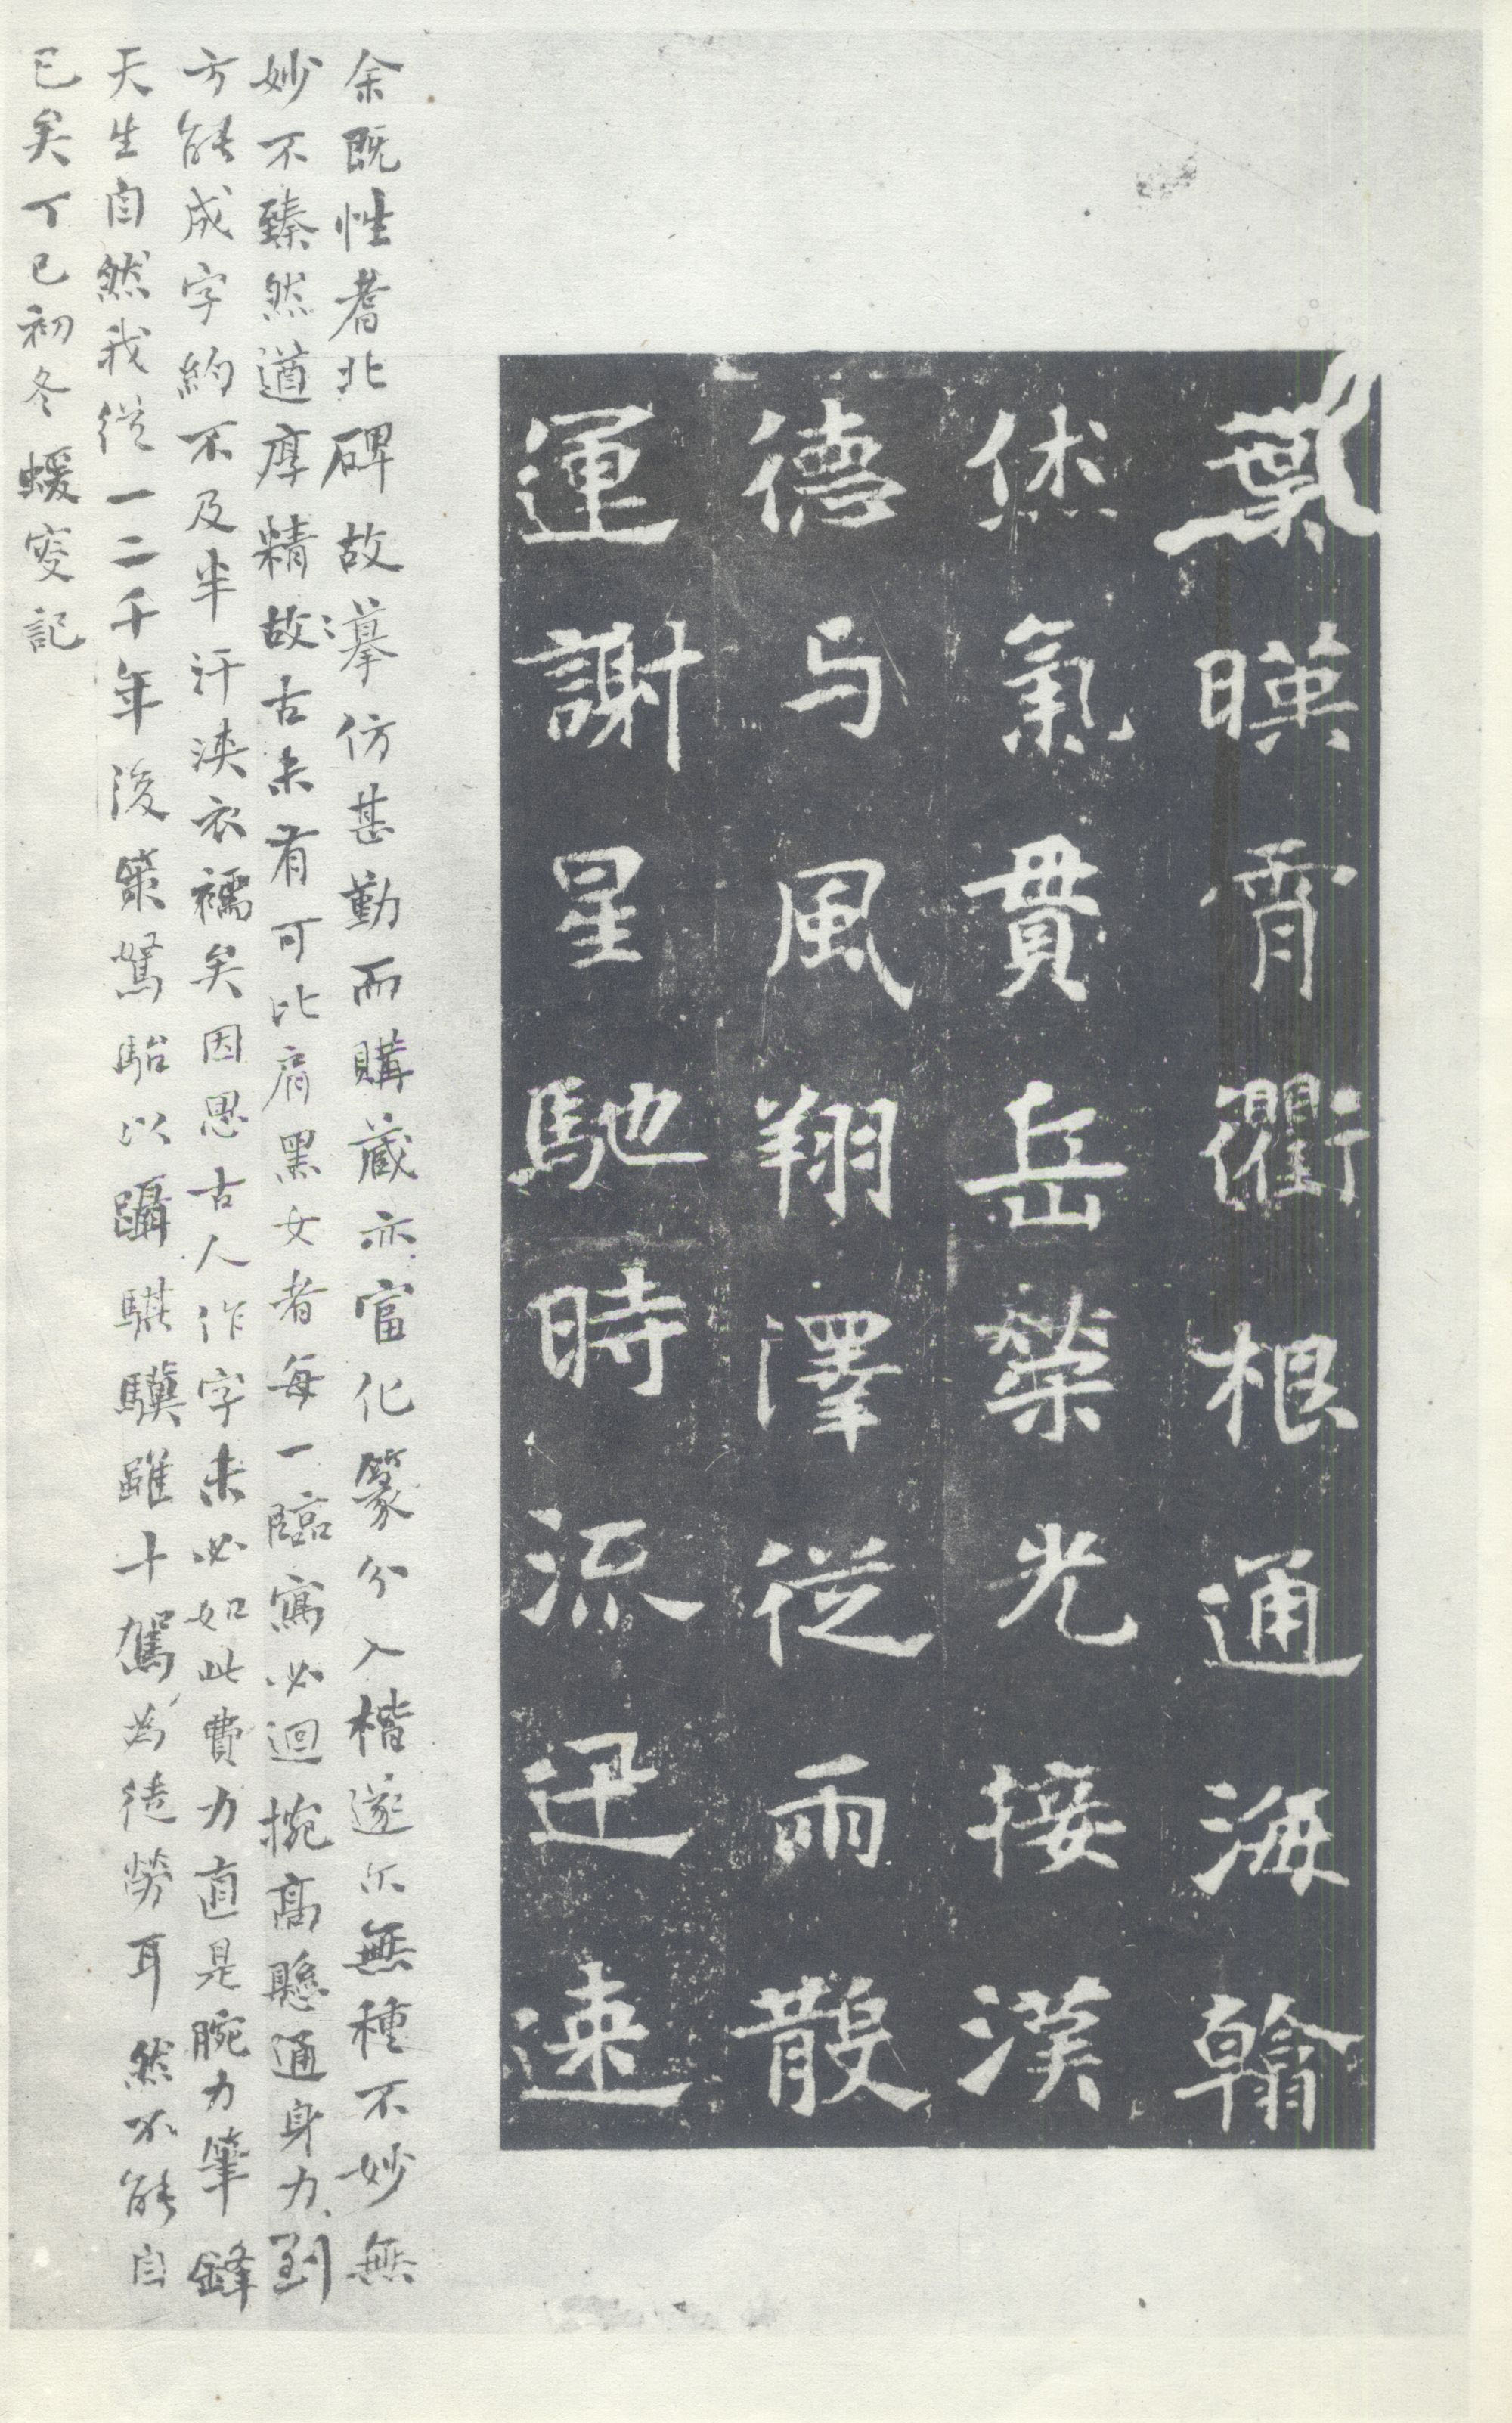 葉暎霄衢根通海翰
体氣貫岳榮光接漢
德与風翔澤從雨散
運謝星馳時流迅速
余既性耆北碑故摹仿甚勤而購藏亦富化篆分入楷遂尒無種不妙無
妙不臻然遒厚精故古未有可比肩黑女者每一臨寫必迴捥高懸通身力到
方能成字約不及半汗浹衣襦矣因思古人作字未必如此費力直是腕力筆鋒
天生自然我從一二千年後策駑駘以躡騏驥雖十駕為徒勞耳然不能自
已矣丁巳初冬蝯叟記